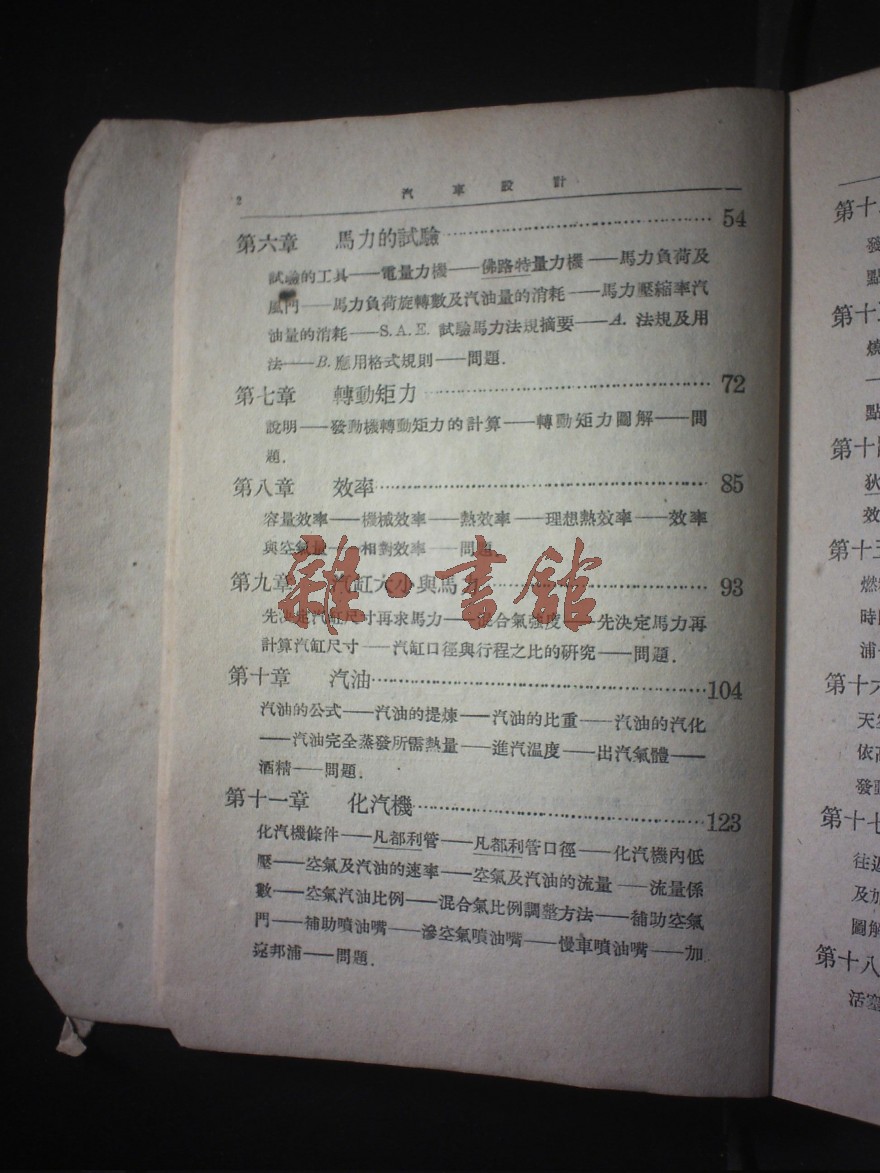 2
汽車設計
第六章 馬力的試驗 54
試驗的工具——電量力機——佛路特量力機——馬力負荷及
風門——馬力負荷旋轉數及汽油量的消耗——馬力壓縮率汽
油量的消耗——S.A.E. 試驗馬力法規摘要——A. 法規及用
法——B. 應用格式規則——問題.
第七章 轉動矩力 72
說明——發動機轉動矩力的計算——轉動矩力圖解——問
題.
第八章 效率 85
容量效率——機械效率——熱效率——理想熱效率——效率
與空氣量——相對效率——問題.
第九章 汽缸大小與馬力 93
先決定汽缸尺寸再求馬力——混合氣強度——先決定馬力再
計算汽缸尺寸——汽缸口徑與行程之比的研究——問題.
第十章 汽油 104
汽油的公式——汽油的提煉——汽油的比重——汽油的汽化
——汽油完全蒸發所需熱量——進汽溫度——出汽氣體——
酒精——問題.
第十一章 化汽機 123
化汽機條件——凡都利管——凡都利管口徑——化汽機內低
壓——空氣及汽油的速率——空氣及汽油的流量——流量係
數——空氣汽油比例——混合氣比例調整方法——補助空氣
門——補助噴油嘴——滲空氣噴油嘴——慢車噴油嘴——加
速邦浦——問題.
雜·書館
第十
發
點
第十
燒
一
點
第十
狄
效
第十五
燃
時
浦
第十六
天
依
發
第十七
往
及加
圖解
第十八
活塞